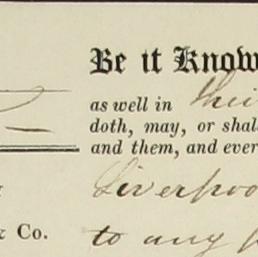 Be it Know
as well in thei
doth, may, or shal
and them, and ever
Liverpoo
& Co.
to any